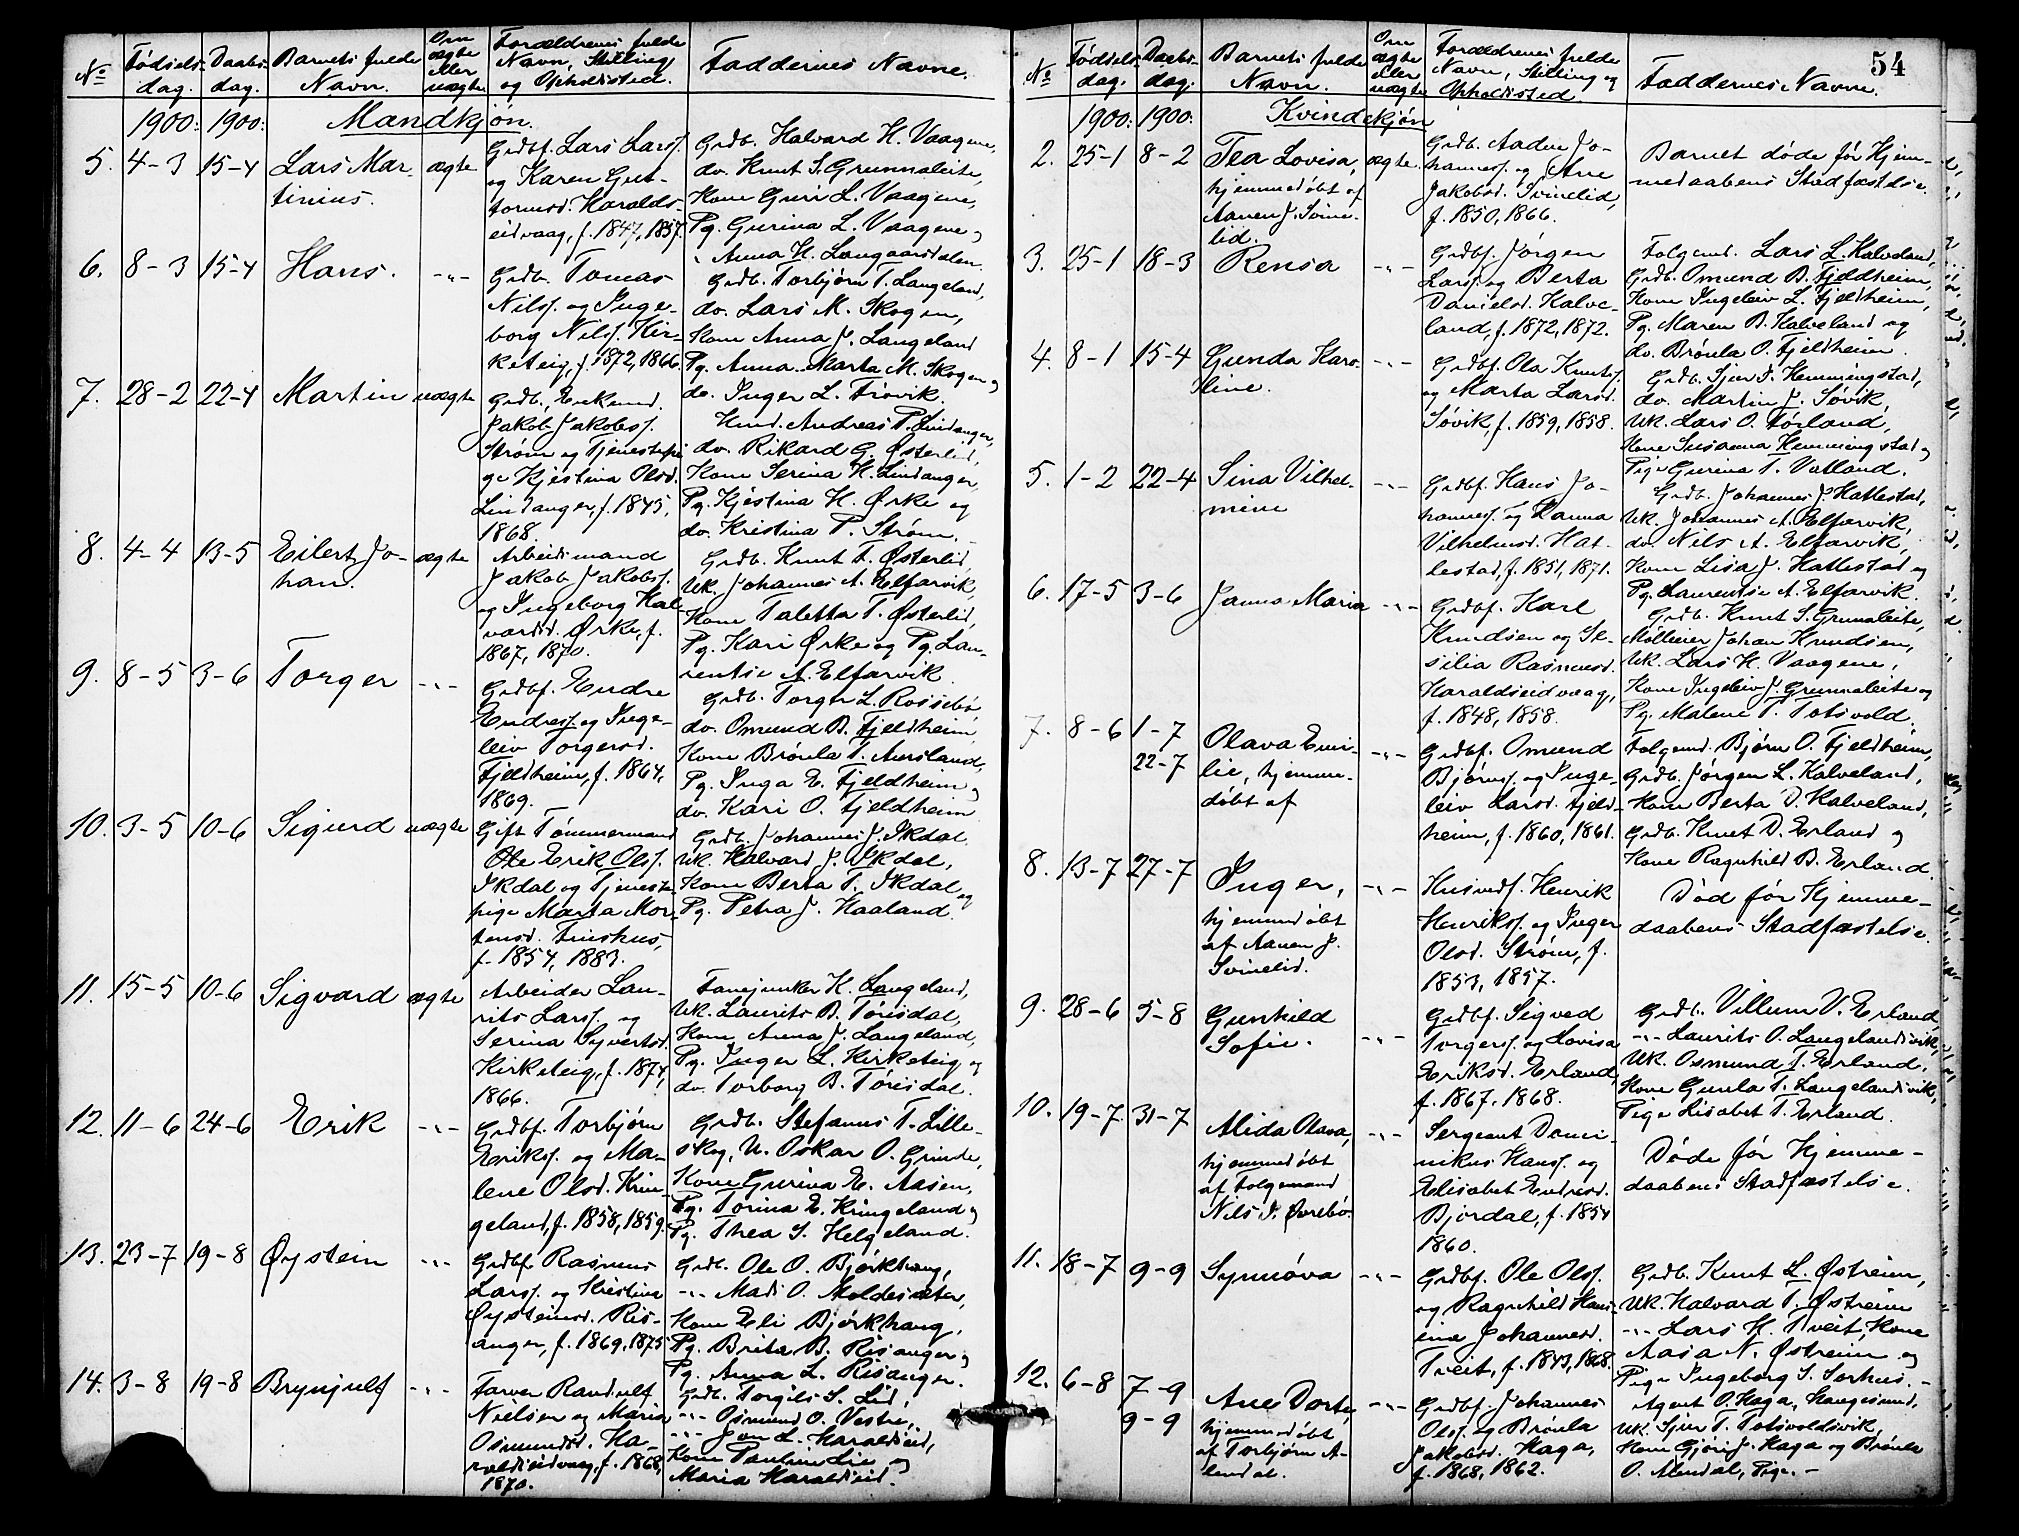 No
Fødsels-
dag.
Daabs-
dag.
Barnets fulde
Navn.
Om
ægte
eller
uægte
Forældrenes fulde
Navn, Stilling
og Opholdssted.
Faddernes Navne.
1900: 1900: Mandkjøn.
5. 4-3 15-4 Lars Mar-
tinius.
ægte
Grdbf. Lars Larss.
og Karen Gut-
tormsd. Haralds-
eidvaag, f. 1847, 1857.
Grdb. Halvard H. Vaagene,
do. Knut S. Grunnaleite,
Kone Guri L. Vaagene,
Pg. Gurina L. Vaagene og
" Anna H. Langaarsdalen.
6. 8-3 15-4 Hans.
-"-
Grdb. Tomas
Nilss. og Inge-
borg Nilss. Kir-
keteig, f. 1872, 1866.
Grdb. Torbjørn T. Langeland,
do. Lars M. Skogen,
Kone Anna J. Langeland
Pg. Anna Marta M. Skogen og
do. Inger L. Frøvik.
7. 28-2 22-4 Martin uægte
Grdb., Enkemd.
Jakob Jakobss.
Strøm og Tjenestepi
ge Kjestina Olsd.
Lindanger, f. 1845,
1868.
Husd. Andreas P. Lindanger,
do. Rikard G. Østerlid,
Kone Serina H. Lindanger,
Pg. Kjestina H. Ørke og
do. Kristina P. Strøm.
8. 4-4 13-5 Eilert Jo-
han.
ægte
Arbeidsmand
Jakob Jakobss.
og Ingeborg Hal-
vardsd. Ørke, f.
1867, 1870.
Grdb. Knut T. Østerlid,
Uk. Johannes A. Elfarvik,
Kone Taletta T. Østerlid,
Pg. Kari Ørke og Pg. Lau-
rentse A. Elfarvik.
9. 8-5 3-6 Torger
-"-
Grdbf. Endre
Endress. og Inge-
leiv Torgersd.
Fjeldheim, f. 1864,
1869.
Grdb. Torger L. Rossebø,
do. Omund B. Fjeldheim,
Kone Brønla T. Aursland,
Pg. Inga E. Fjeldheim og
do. Kari O. Fjeldheim
10. 3-5 10-6 Sigurd uægte
Gift Tømmermand
Ole Erik Olss.
Ikdal og Tjeneste
pige Marta Mor-
tensd. Finshus,
f. 1854, 1883.
Grdb. Johannes J. Ikdal
Uk. Halvard J. Ikdal,
Kone Berta T. Ikdal og
Pg. Petra J. Haaland.
11. 15-5 10-6 Sigvard ægte
Arbeider Lau-
rits Larss. og
Serina Syvertsd.
Kirketeig, f. 1874,
1866.
Fanejunker H. Langeland,
Uk. Laurits B. Tørisdal,
Kone Anna J. Langeland,
Pg. Inger L. Kirketeig og
do. Torborg B. Tørisdal.
12. 11-6 24-6 Erik
-"-
Grdbf. Torbjørn
Erikss. og Ma-
lene Olsd. Krin-
geland, f. 1858, 1859.
Grdb. Stefanus T. Lille-
skog, U. Oskar O. Grinde,
Kone Gurina E. Aasen,
Pg. Torina E. Kringeland og
Pg. Thea S. Helgeland.
13. 23-7 19-8 Øystein
-"-
Grdbf. Rasmus
Larss. og Kristina
Øysteinsd. Ris-
anger, f. 1869, 1875
Grdb. Ole O. Bjørkhaug,
-"- Mads O. Moldesæter,
Kone Eli Bjørkhaug,
Pg. Brita B. Risanger og
Pg. Anna L. Risanger.
14. 3-8 19-8 Brynjulf
-"-
Farver Randulf
Nielsen og Maria
Osmundsd. Ha-
raldseidvaag, f. 1868,
1870.
Grdb. Torgils S. Lid,
-"- Osmund O. Vestre,
-"- Jon L. Haraldseid,
Kone Pauline Lie og
Maria Haraldseid.
54
No
Fødsels
dag.
Daabs-
dag.
Barnets fulde
Navn.
Om
ægte
eller
uægte
Forældrenes fulde
Navn, Stilling og
Opholdssted.
Faddernes Navne.
1900: 1900: Kvindekjøn
2. 25-1 8-2 Tea Lovisa,
hjemmedøbt af
Aanen J. Svine-
lid.
ægte.
Grdb. Aaden Jo-
hanness. og Ane
Jakobsd. Svinelid,
f. 1850, 1866.
Barnet døde før Hjem-
medaabens Stadfæstelse.
3. 25-1 18-3 Rensa
-"-
Grdbf. Jørgen
Larss. og Berta
Danielsd. Kalve-
land, f. 1872, 1872.
Folgemd. Lars L. Kalveland,
Grdb. Omund B. Fjeldheim,
Kone Ingeleiv L. Fjeldheim,
Pg. Maren B. Kalveland og
do. Brønla O. Fjeldheim.
4. 8-1 15-4 Gunda Karo-
line.
-"-
Grdbf. Ola Knuts.
og Marta Larsd.
Søvik, f. 1859, 1858.
Grdb. Sjur T. Hemmingstad,
do. Martin J. Søvik,
Uk. Lars O. Førland,
Kone Susanna Hemmingstad og
Pige Gurina T. Vatland.
5. 1-2 22-4 Sina Vilhel-
mine
-"-
Grdbf. Hans Jo-
hanness. og Hanna
Vilhelmsd. Hat-
lestad, f. 1851, 1871.
Grdb. Johannes J. Hatlestad,
Uk. Johannes A. Elfarvik,
do. Nils A. Elfarvik,
Kone Lisa J. Hatlestad og
Pg. Laurentse A. Elfarvik.
6. 17-5 3-6 Janna Maria
-"-
Grdbf. Karl
Knudsen og Se-
silia Rasmusd.
Haraldseidvaag,
f. 1848, 1858.
Grdb. Knut S. Grunnaleite,
Møller Johan Knudsen,
Uk. Lars H. Vaagene,
Kone Ingeleiv J. Grunnaleite og
Pg. Malene T. Totsvold.
7. 8-6 1-7
22-7
Olava Emi-
lie, hjemme-
døbt af
-"-
Grdbf. Omund
Bjørnss. og Inge-
leiv Larsd. Fjeld-
heim, f. 1860, 1861.
Folgemd. Bjørn O. Fjeldheim,
Grdb. Jørgen L. Kalveland,
Kone Berta D. Kalveland,
Grdb. Knut D. Erland og
Kone Ragnhild B. Erland.
8. 13-7 27-7 Inger,
hjemmedøbt
af Aanen J.
Svinelid.
-"-
Husmdf. Henrik
Henrikss. og Inger
Olsd. Strøm, f.
1853, 1857.
Død før Hjemme-
daabens Stadfæstelse.
9. 28-6 5-8 Gunhild
Sofie.
-"-
Grdbf. Sigved
Torgerss. og Lovisa
Eriksd. Erland,
f. 1867, 1868.
Grdb. Villum V. Erland,
-"- Laurits O. Langelandsvik,
Uk. Osmund T. Erland,
Kone Gunla T. Langelandsvik,
Pige Lisabet T. Erland.
10. 19-7 31-7 Alida Olava,
hjemmedøbt
af Folgemand
Nils P. Øvrebø.
-"-
Sergeant Domi-
nikus Hanss. og
Elisabet Endresd.
Bjordal, f. 1854
1860.
Døde før Hjemme-
daabens Stadfæstelse.
11. 18-7 9-9 Synnøva
-"-
Grdbf. Ole Olss.
og Ragnhild Hans-
ina Johannesd.
Tveit, f. 1843, 1868.
Grdb. Knut L. Østreim,
Uk. Halvard T. Østreim
-"- Lars H. Tveit, Kone
Aasa N. Østreim og
Pige Ingeborg S. Sørhus. -
12. 6-8 7-9
9-9
Ane Dorte,
hjemmedøbt
af Torbjørn A-
lendal.
-"-
Grdbf. Johannes
Olss. og Brønla
Jakobsd. Haga,
f. 1868, 1862.
Agent O. Haga, Haugesund,
Uk. Sjur T. Totsvoldsvik,
Kone Gjøri J. Haga og Brønla
O. Alendal, Pige. -